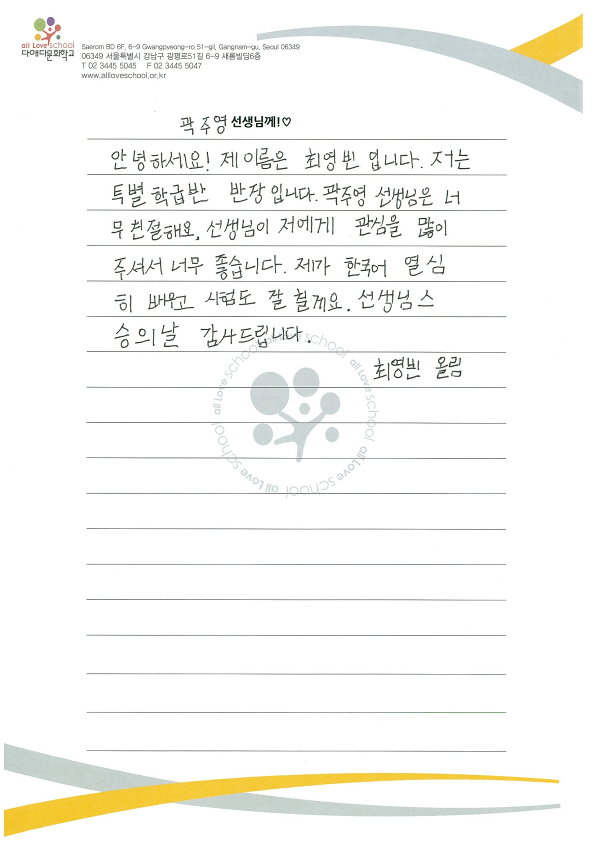 all Love school
다애다문화학교
Saerom BD 6F, 6-9 Gwangpyeong-ro 51-gil, Gangnam-gu, Seoul 06349
06349 서울특별시 강남구 광평로51길 6-9 새롬빌딩6층
T 02 3445 5045 F 02 3445 5047
www.allloveschool.or.kr
곽주영 선생님께!♡
안녕하세요! 제 이름은 최영빈 입니다. 저는
특별 학급반 반장입니다. 곽주영 선생님은 너
무 친절해요. 선생님이 저에게 관심을 많이
주셔서 너무 좋습니다. 제가 한국어 열심
히 배우고 시험도 잘 칠게요. 선생님 스
승의날 감사드립니다.
최영빈 올림
all Love school all Love school all Love school all Love school